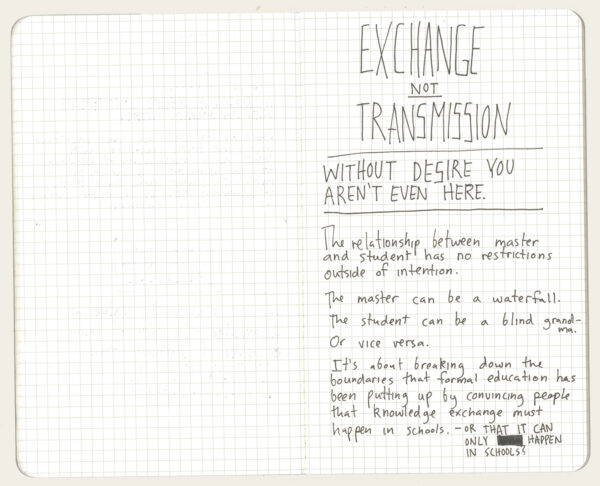 EXCHANGE
NOT
TRANSMISSION
WITHOUT DESIRE YOU
AREN'T EVEN HERE.
The relationship between master
and student has no restrictions
outside of intention.
The master can be a waterfall.
The student can be a blind grand-
ma.
Or vice versa.
It's about breaking down the
boundaries that formal education has
been putting up by convincing people
that knowledge exchange must
happen in schools. - OR THAT IT CAN
ONLY HAPPEN
IN SCHOOLS?